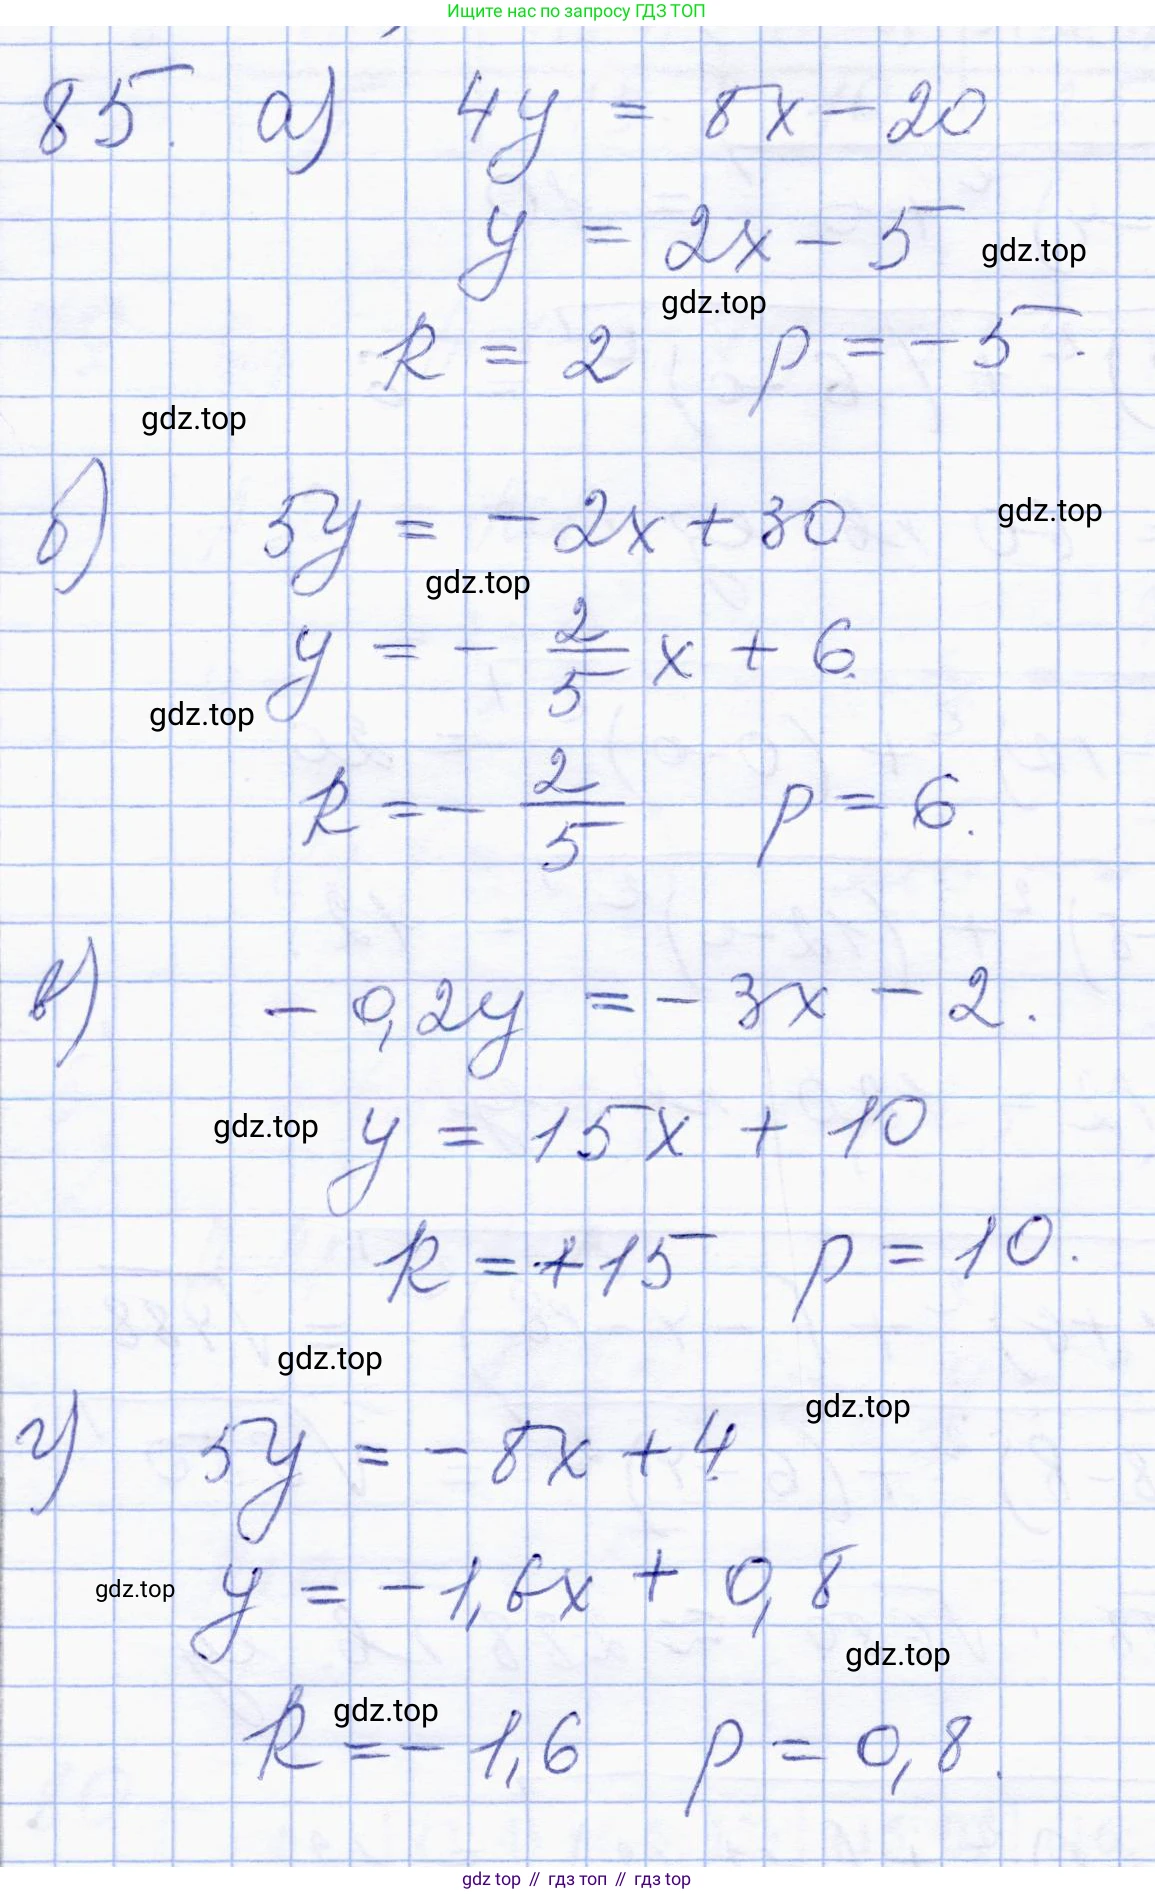 Ищите нас по запросу ГДЗ ТОП
85. а) 4y = 8x - 20
y = 2x - 5
gdz.top
gdz.top
k = 2 p = -5.
gdz.top
б) 5y = -2x + 30
gdz.top
gdz.top
y = - 2/5 x + 6.
gdz.top
k = - 2/5 p = 6.
в) - 0,2y = - 3x - 2.
gdz.top
y = 15x + 10
k = +15 p = 10.
gdz.top
gdz.top
г) 5y = -8x + 4
gdz.top
y = -1,6x + 0,8
gdz.top
gdz.top
k = -1,6 p = 0,8.
gdz top // гдз топ // гдз top